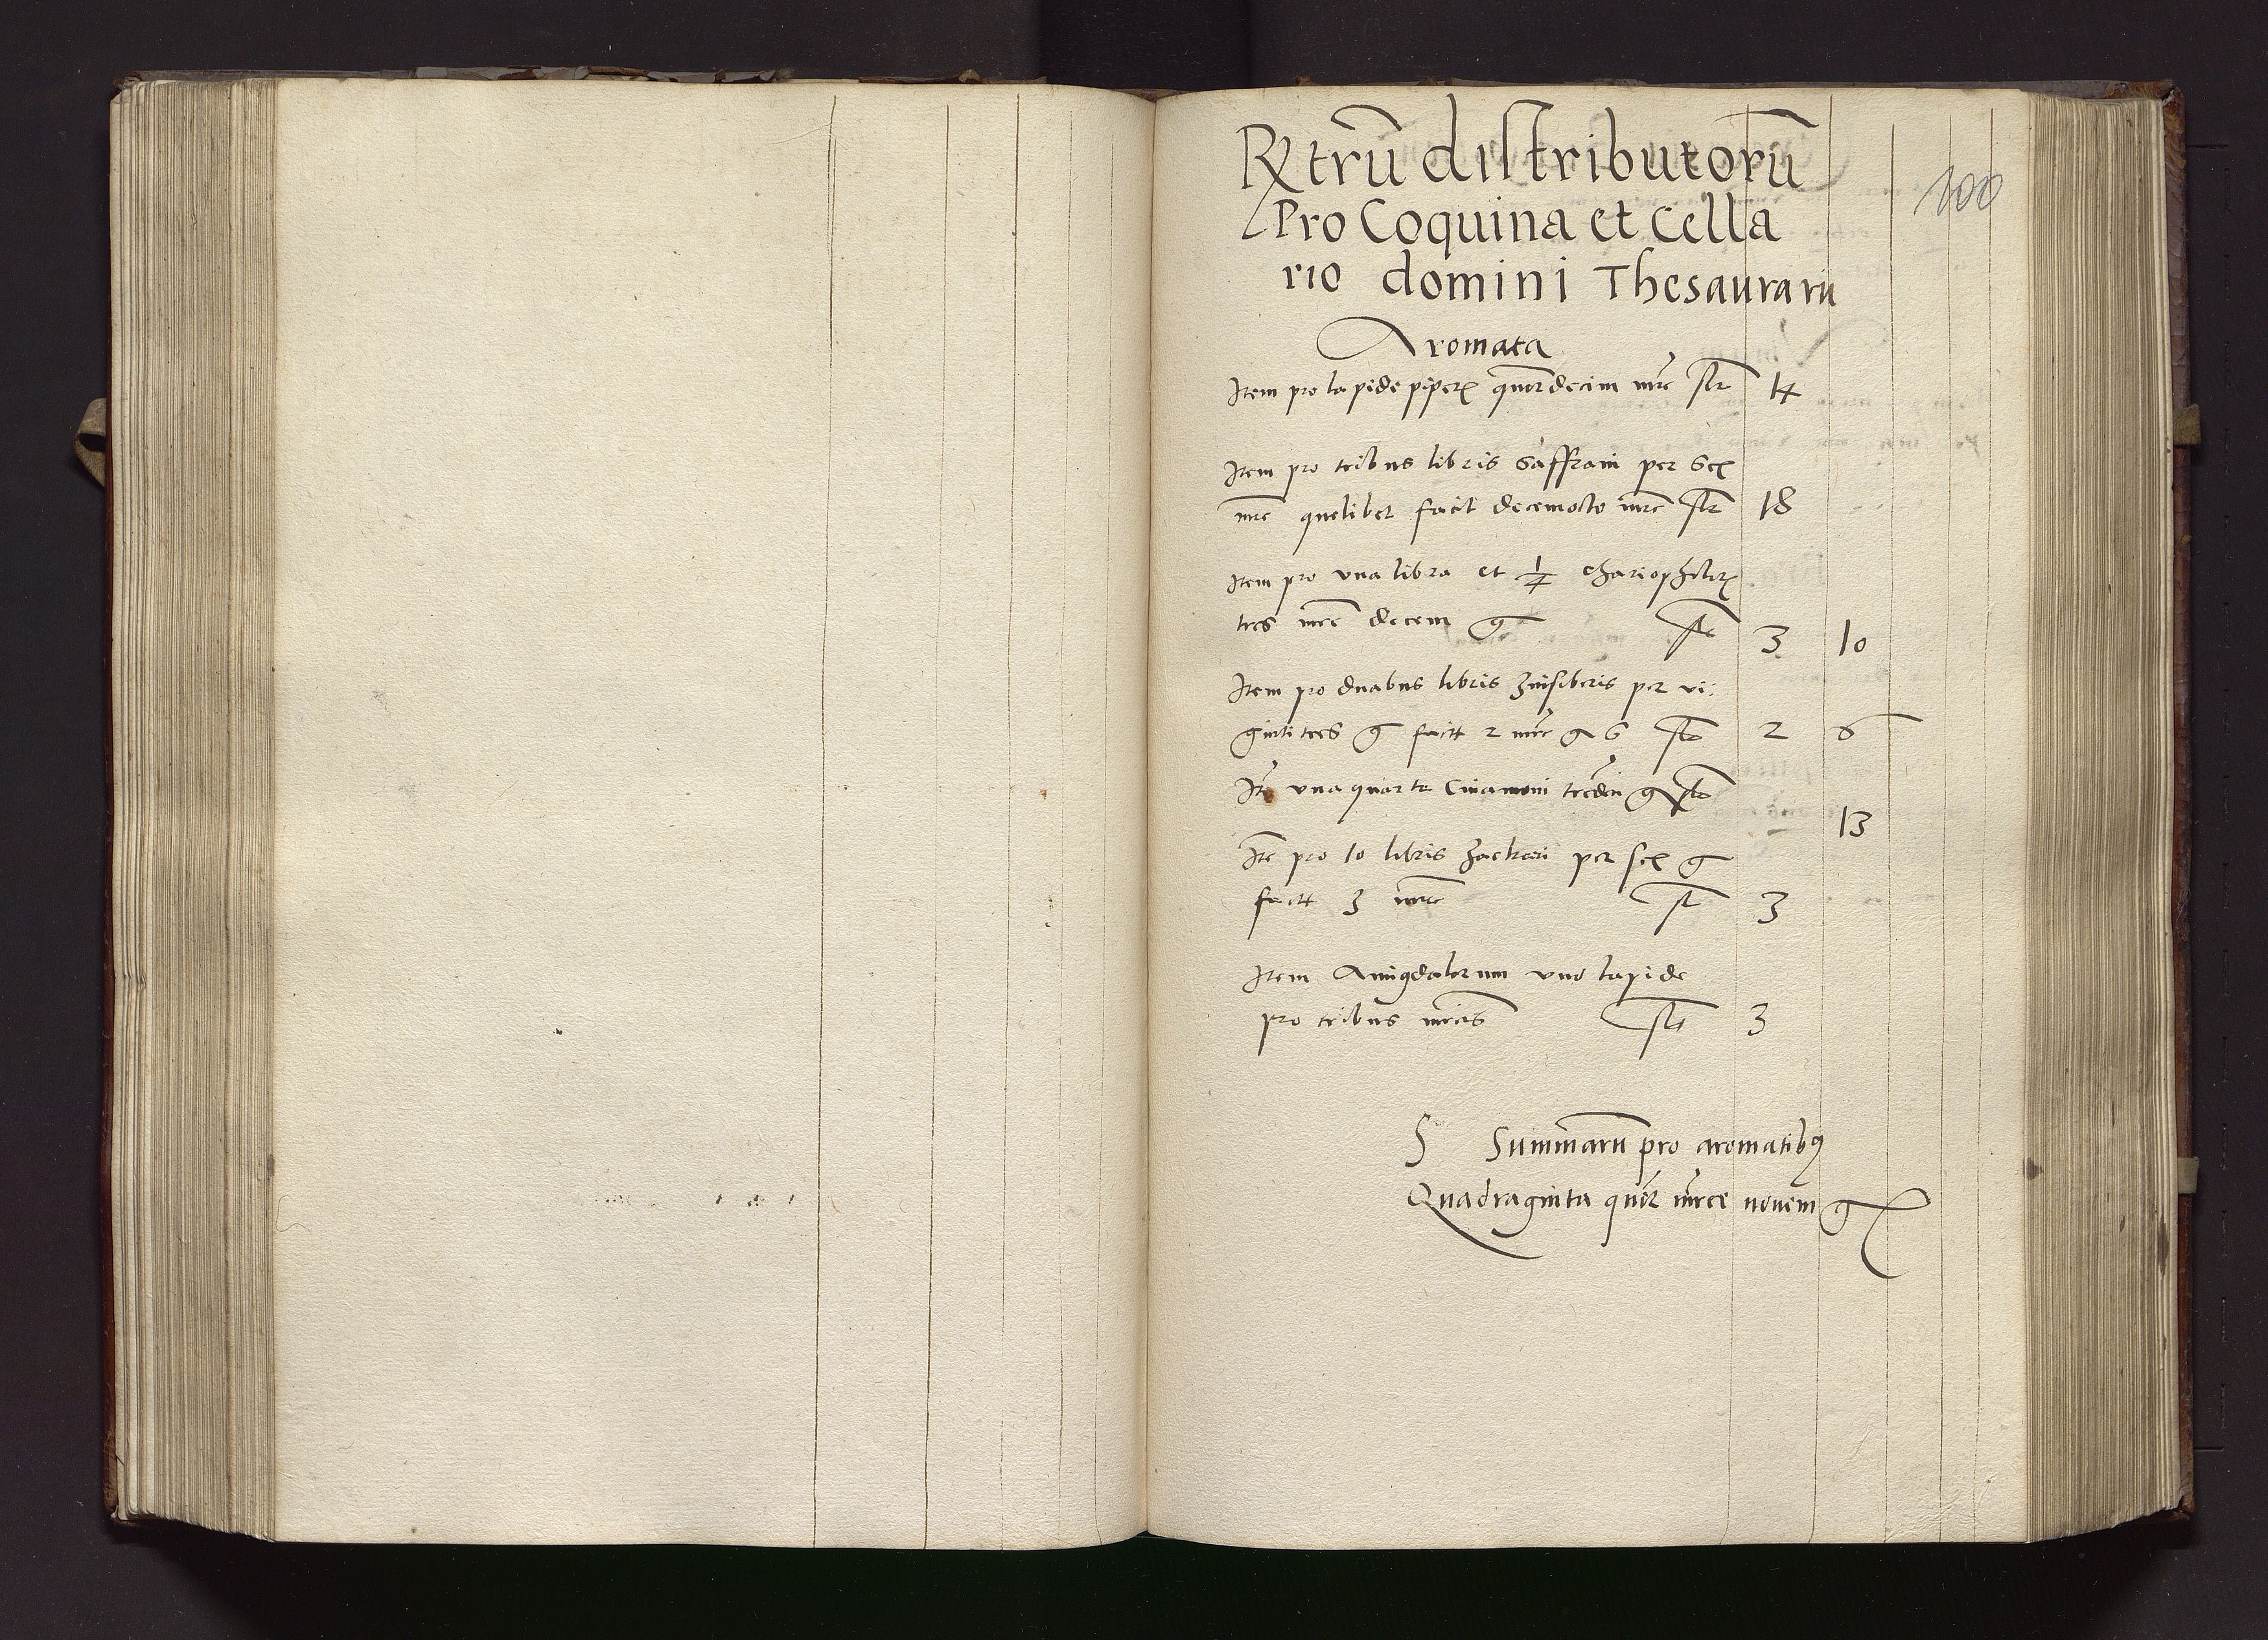 Rxtrū distributorū
Pro Coquina et Cella
rio domini Thesaurarii
100
Aromata
Item pro lapide piper quordecim mrc 14
Item pro tribus libris Saffrani per sex
mrc quelibet facit decemocto mrc 18
Item pro una libra et 1/4 chariophilor
tres mrc decem g 3 10
Item pro duabus libris Zinsiberis per vi:
ginti tres g facit 2 mrc g 6 2 6
Itē una quarta Cinamoni tredeci g
13
Itē pro 10 libris Zachari per sex g
facit 3 mrc 3
Item Amigdalorum uno lapide
pro tribus mrcis 3
S Summarū pro aromatibꝯ
Quadraginta quor mrce novem g